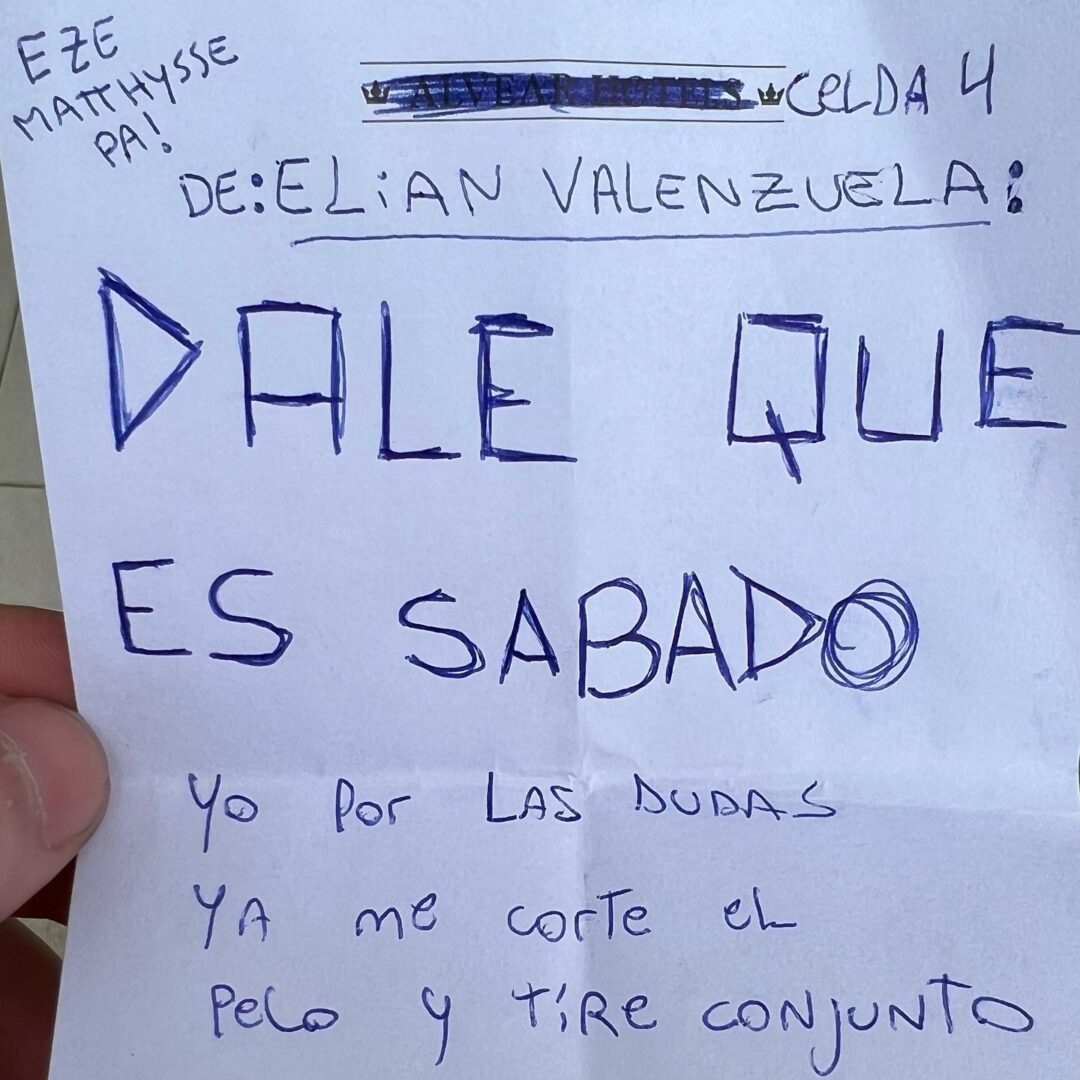 EZE
MATTHYSSE
PA!
ALVEAR HOTELS CELDA 4
DE: ELiAN VALENZUELA:
DALE QUE
ES SABADO
Yo Por LAS DUDAS
YA me corTe eL
PeLo y TíRe CONJUNTO